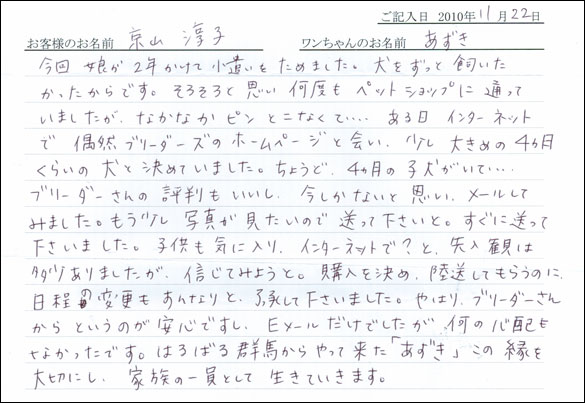 ご記入日 2010年11月22日
お客様のお名前 京山 淳子 ワンちゃんのお名前 あずき
今回 娘が 2年かけて 小遣いを ためました。犬を ずっと 飼いた
かったからです。そろそろと 思い 何度も ペットショップに 通って
いましたが、なかなか ピン とこなくて… ある日 インターネット
で 偶然 ブリーダーズの ホームページ と会い、少し 大きめの 4ヵ月
くらいの 犬と 決めていました。ちょうど、4ヵ月の 子犬がいて…
ブリーダーさんの 評判も いいし、今しかないと 思い、メールして
みました。もう少し 写真が 見たいので 送って 下さいと。すぐに送って
下さいました。子供も 気に入り、インターネットで?と、先入観は
多少ありましたが、信じてみようと。購入を決め、陸送してもらうのに、
日程の変更も すんなりと、了承して下さいました。やはり、ブリーダーさん
から というのが 安心ですし、Eメールだけでしたが、何の心配も
なかったです。はるばる 群馬から やって 来た「あずき」この 縁を
大切にし、家族の一員として 生きていきます。